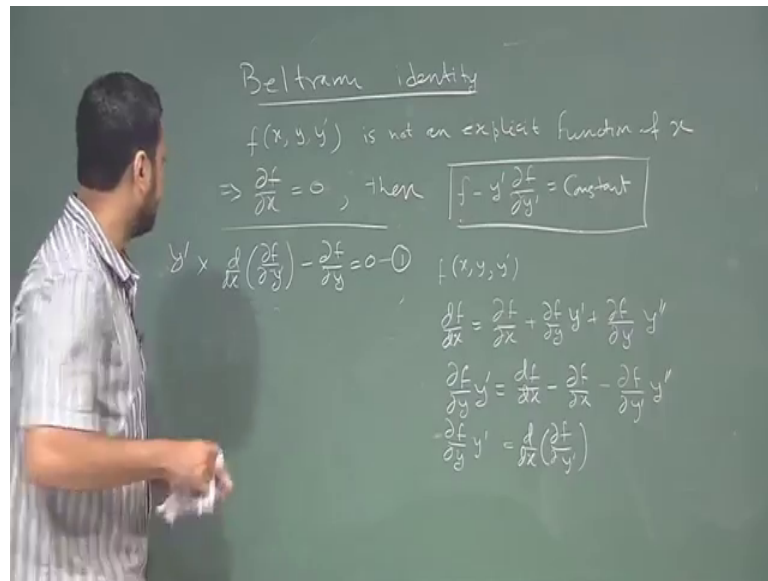 Beltrami identity
f(x, y, y') is not an explicit function of x
⇒ ∂f/∂x = 0, then f - y' ∂f/∂y' = Constant
y' × d/dx(∂f/∂y') - ∂f/∂y = 0 - ①
f(x, y, y')
df/dx = ∂f/∂x + ∂f/∂y y' + ∂f/∂y' y''
∂f/∂y y' = df/dx - ∂f/∂x - ∂f/∂y' y''
∂f/∂y y' = d/dx(∂f/∂y')